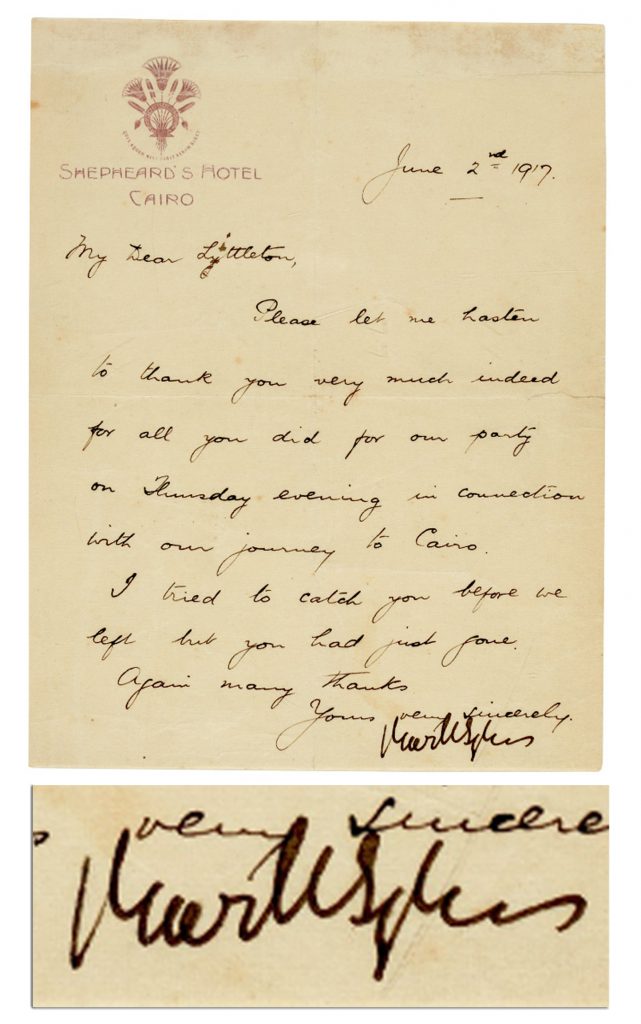 SHEPHEARD'S HOTEL
CAIRO
June 2nd 1917.
My Dear Lyttleton,
Please let me hasten
to thank you very much indeed
for all you did for our party
on Thursday evening in connection
with our journey to Cairo.
I tried to catch you before we
left but you had just gone.
Again many thanks
Yours very sincerely.
Mark Sykes
very sincere
Mark Sykes